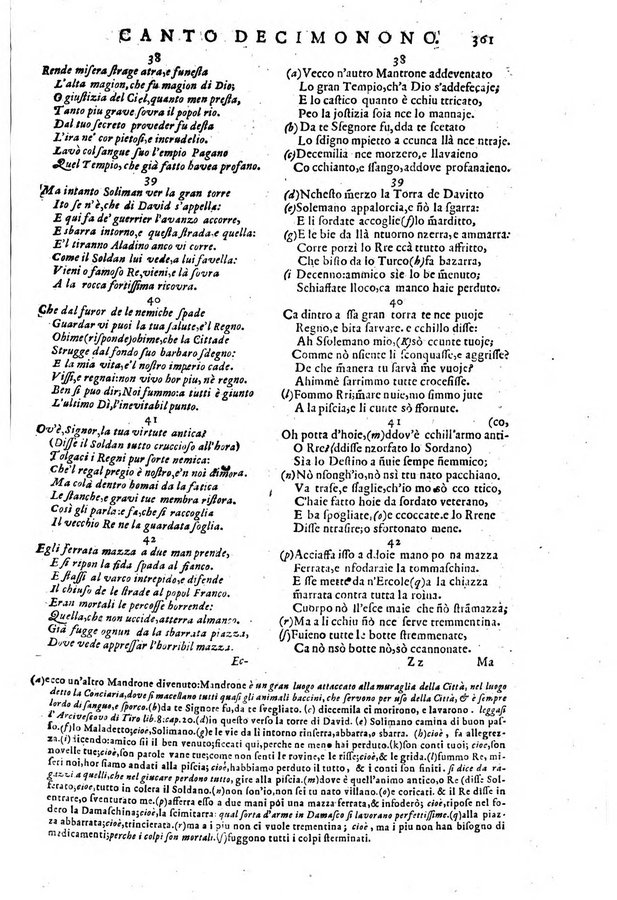 CANTO DECIMONONO. 361
38
Rende misera strage atra, e funesta
L'alta magion, che fu magion di Dio;
O giustizia del Ciel, quanto men presta,
Tanto piu grave sovra il popol rio.
Dal tuo secreto proveder fu desta
L'ira ne' cor pietosi, e incrudelio.
Lavò col sangue suo l'empio Pagano
Quel Tempio, che già fatto havea profano.
39
Ma intanto Soliman ver la gran torre
Ito se n'è, che di David s'appella:
E qui fa de' guerrier l'avanzo accorre,
E sbarra intorno, e questa strada, e quella:
E'l tiranno Aladino anco vi corre.
Come il Soldan lui vede, a lui favella:
Vieni o famoso Re, vieni, e là sovra
A la rocca fortissima ricovra.
40
Che dal furor de le nemiche spade
Guardar vi puoi la tua salute, e'l Regno.
Ohime (risponde) ohime, che la Cittade
Strugge dal fondo suo barbaro sdegno:
E la mia vita, e'l nostro imperio cade.
Vissi, e regnai: non vivo hor piu, nè regno
Ben si puo dir; Noi fummo: a tutti è giunto
L'ultimo Dì, l'inevitabil punto.
41
Ov'è, Signor, la tua virtute antica?
(Disse il Soldan tutto cruccioso all'hora)
Tolgaci i Regni pur sorte nemica:
Che'l regal pregio è nostro, e'n noi dimora.
Ma colà dentro homai da la fatica
Le stanche, e gravi tue membra ristora.
Così gli parla: e fa, che si raccoglia
Il vecchio Re ne la guardata soglia.
42
Egli ferrata mazza a due man prende,
E si ripon la fida spada al fianco.
E stassi al varco intrepido, e difende
Il chiuso de le strade al popol Franco.
Eran mortali le percosse horrende:
Quella, che non uccide, atterra almanco.
Già fugge ognun da la sbarrata piazza,
Dove vede appressar l'horribil mazza.
Ec-
38
(a) Vecco n'autro Mantrone addeventato
Lo gran Tempio, ch'a Dio s'addefecaje;
E lo castico quanto è cchiu ttricato,
Peo la jostizia soia nce lo mannaje.
(b) Da te Sfegnore fu, dda te scetato
Lo sdigno mpietto a ccunca llà nce ntraje.
(c) Decemilia nce morzero, e llavaieno
Co cchianto, e ssango, addove profanaieno.
39
(d) Nchesto merzo la Torra de Davitto
(e) Solemano appalorcia, e nò la sgarra:
E li sordate accoglie (f) lo mardìtto,
(g) E le bie da llà ntuorno nzerra, e ammarra:
Corre porzì lo Rre ccà ttutto affritto,
Che bisto da lo Turco (h) fa bazarra,
(i Decenno: ammico siè lo be menuto;
Schiaffate lloco, ca manco haie perduto.
40
Ca dintro a ssa gran torra te nce puoje
Regno, e bita sarvare. e cchillo disse:
Ah Ssolemano mio, (K) sò ccunte tuoje;
Comme nò nsiente li sconquasse, e aggrisse?
De che manera tu sarvà me vuoje?
Ahimmè sarrimmo tutte crocefisse.
(l) Fommo Rri; mare nuie, mo simmo jute
A la piscia, e li cunte sò sfornute.
41 (co,
Oh potta d'hoie, (m) ddov'è cchill'armo anti-
O Rre? (ddisse nzorfato lo Sordano)
Sia lo Destino a nuie sempe nemmico;
(n) Nò nsongh'io, nò nsi tu nato pacchiano.
Va trase, e ssaglie, ch'io mo sò cco ttico,
C'haie fatto hoie da sordato veterano,
E ba spogliate, (o) e ccoccate. e lo Rrene
Disse ntrasire; o sfortonato mene.
42
(p) Acciaffa isso a doie mano po na mazza
Ferrata, e nfodaraie la tommaschina.
E sse mette da n'Ercole (q) a la chiazza
Marrata contra tutta la roina.
Cuorpo nò ll'esce maie che nò strammazza;
(r) Ma a li cchiu nò nce serve tremmentina.
(s) Fuieno tutte le botte stremmenate,
Ca nò nsò botte nò, sò ccannonate.
Zz Ma
(a) ecco un'altro Mandrone divenuto: Mandrone è un gran luogo attaccato alla muraglia della Città, nel luogo
detto la Conciaria, dove si macellano tutti quasi gli animali baccini, che servono per uso della Città, & è sempre
lordo di sangue, e sporco. (b) da te Signore fu, da te svegliato. (c) diecemila ci morirono, e lavarono. leggasi
l'Arcivescovo di Tiro lib. 8: cap. 20. (d) in questo verso la torre di David. (e) Solimano camina di buon pas-
so. (f) lo Maladetto; cioè, Solimano. (g) e le vie da lì intorno rinserra, abbarra, o sbarra. (h) cioè, fa allegrez-
za. (i) dicendo: amico sii il ben venuto; ficcati qui, perche ne meno hai perduto. (k) son conti tuoi; cioè, son
novelle tue; cioè, son parole vane tue; come non senti le rovine, e le risse; & le grida. (l) fummo Re, mi-
seri noi, hor simo andati alla piscia; cioè, habbiamo perduto il tutto, & i conti son finiti. si dice da ra-
gazzi a quelli, che nel giucare perdono tutto, gire alla piscia. (m) dove è quell'animo antico, o Re (disse Sol-
ferato, cioè, tutto in colera il Soldano. (n) non son'io, non sei tu nato villano. (o) e coricati. & il Re disse in
entrare, o sventurato me. (p) afferra esso a due mani poi una mazza ferrata, & infoderò; cioè, ripose nel fo-
dero la Damaschina; cioè, la scimitarra: qual sorta d'arme in Damasco si lavorano perfettissime. (q) alla piaz-
za abbarrata; cioè, trincierata. (r) ma a i piu non ci vuole trementina; cioè, ma i piu non han bisogno di
medicamenti; perche i colpi son mortali. (s) fuggono tutti i colpi sterminati.